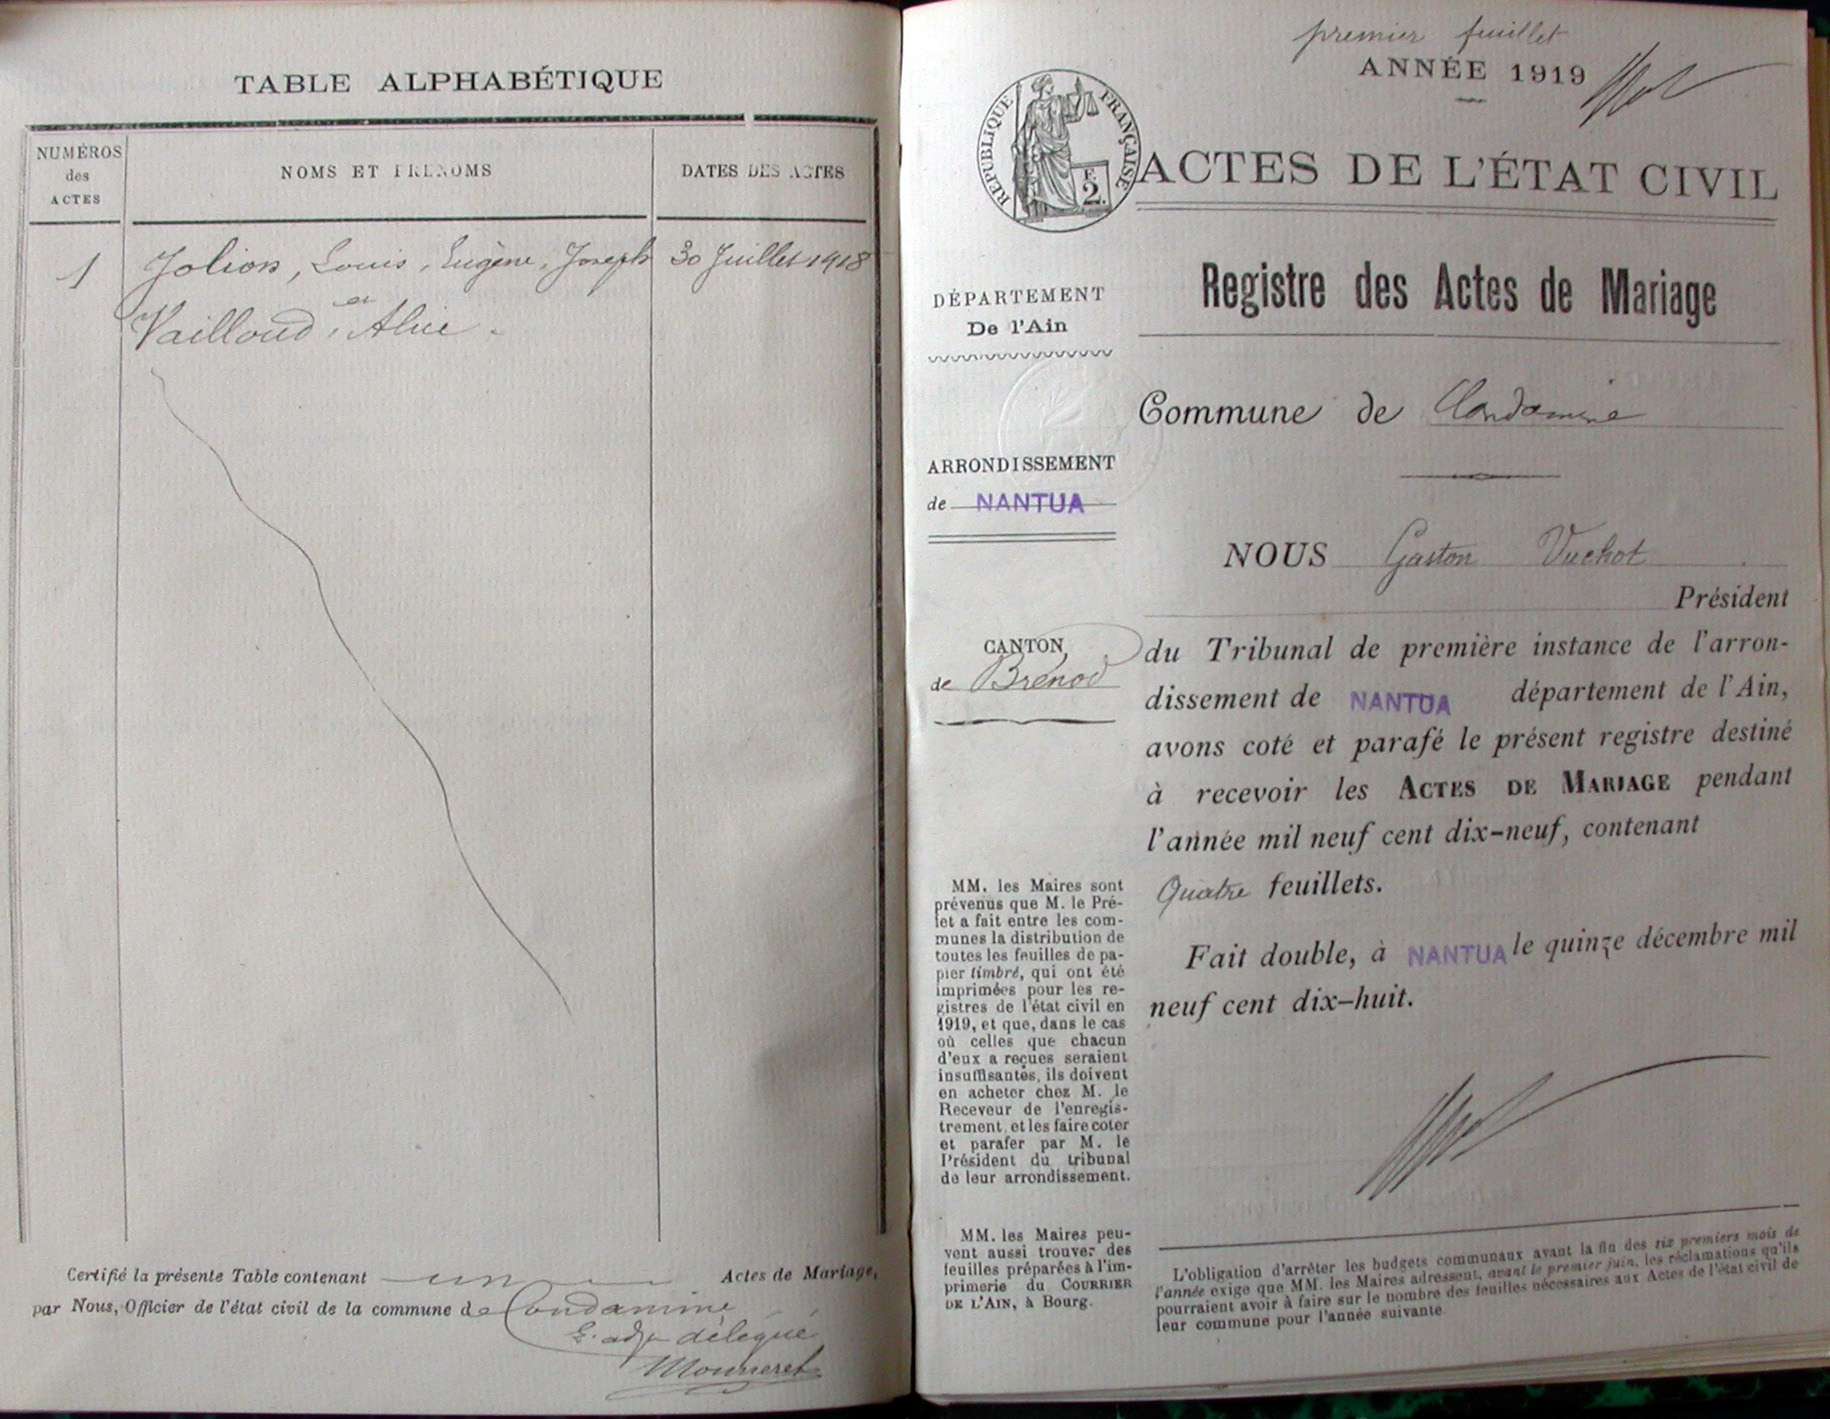 TABLE ALPHABÉTIQUE
NUMÉROS
des
ACTES
NOMS ET PRÉNOMS
DATES DES ACTES
1
Jolion, Louis, Eugène, Joseph 30 Juillet 1918
et
Vailloud, Alice.
Certifié la présente Table contenant un Actes de Mariage,
par Nous, Officier de l'état civil de la commune de Condamine
L. adj délégué
Mourseret
premier feuillet
ANNÉE 1919
RÉPUBLIQUE FRANÇAISE
F.
2.
ACTES DE L'ÉTAT CIVIL
Registre des Actes de Mariage
DÉPARTEMENT
De l'Ain
Commune de Condamine
ARRONDISSEMENT
de NANTUA
NOUS Gaston Vuchot
Président
CANTON
de Brénod
du Tribunal de première instance de l'arron-
dissement de NANTUA département de l'Ain,
avons coté et parafé le présent registre destiné
à recevoir les ACTES DE MARIAGE pendant
l'année mil neuf cent dix-neuf, contenant
Quatre feuillets.
Fait double, à NANTUA le quinze décembre mil
neuf cent dix-huit.
MM. les Maires sont
prévenus que M. le Pré-
fet a fait entre les com-
munes la distribution de
toutes les feuilles de pa-
pier timbré, qui ont été
imprimées pour les re-
gistres de l'état civil en
1919, et que, dans le cas
où celles que chacun
d'eux a reçues seraient
insuffisantes, ils doivent
en acheter chez M. le
Receveur de l'enregis-
trement, et les faire coter
et parafer par M. le
Président du tribunal
de leur arrondissement.
MM. les Maires peu-
vent aussi trouver des
feuilles préparées à l'im-
primerie du COURRIER
DE L'AIN, à Bourg.
L'obligation d'arrêter les budgets communaux avant la fin des six premiers mois de
l'année exige que MM. les Maires adressent, avant le premier juin, les réclamations qu'ils
pourraient avoir à faire sur le nombre des feuilles nécessaires aux Actes de l'état civil de
leur commune pour l'année suivante.